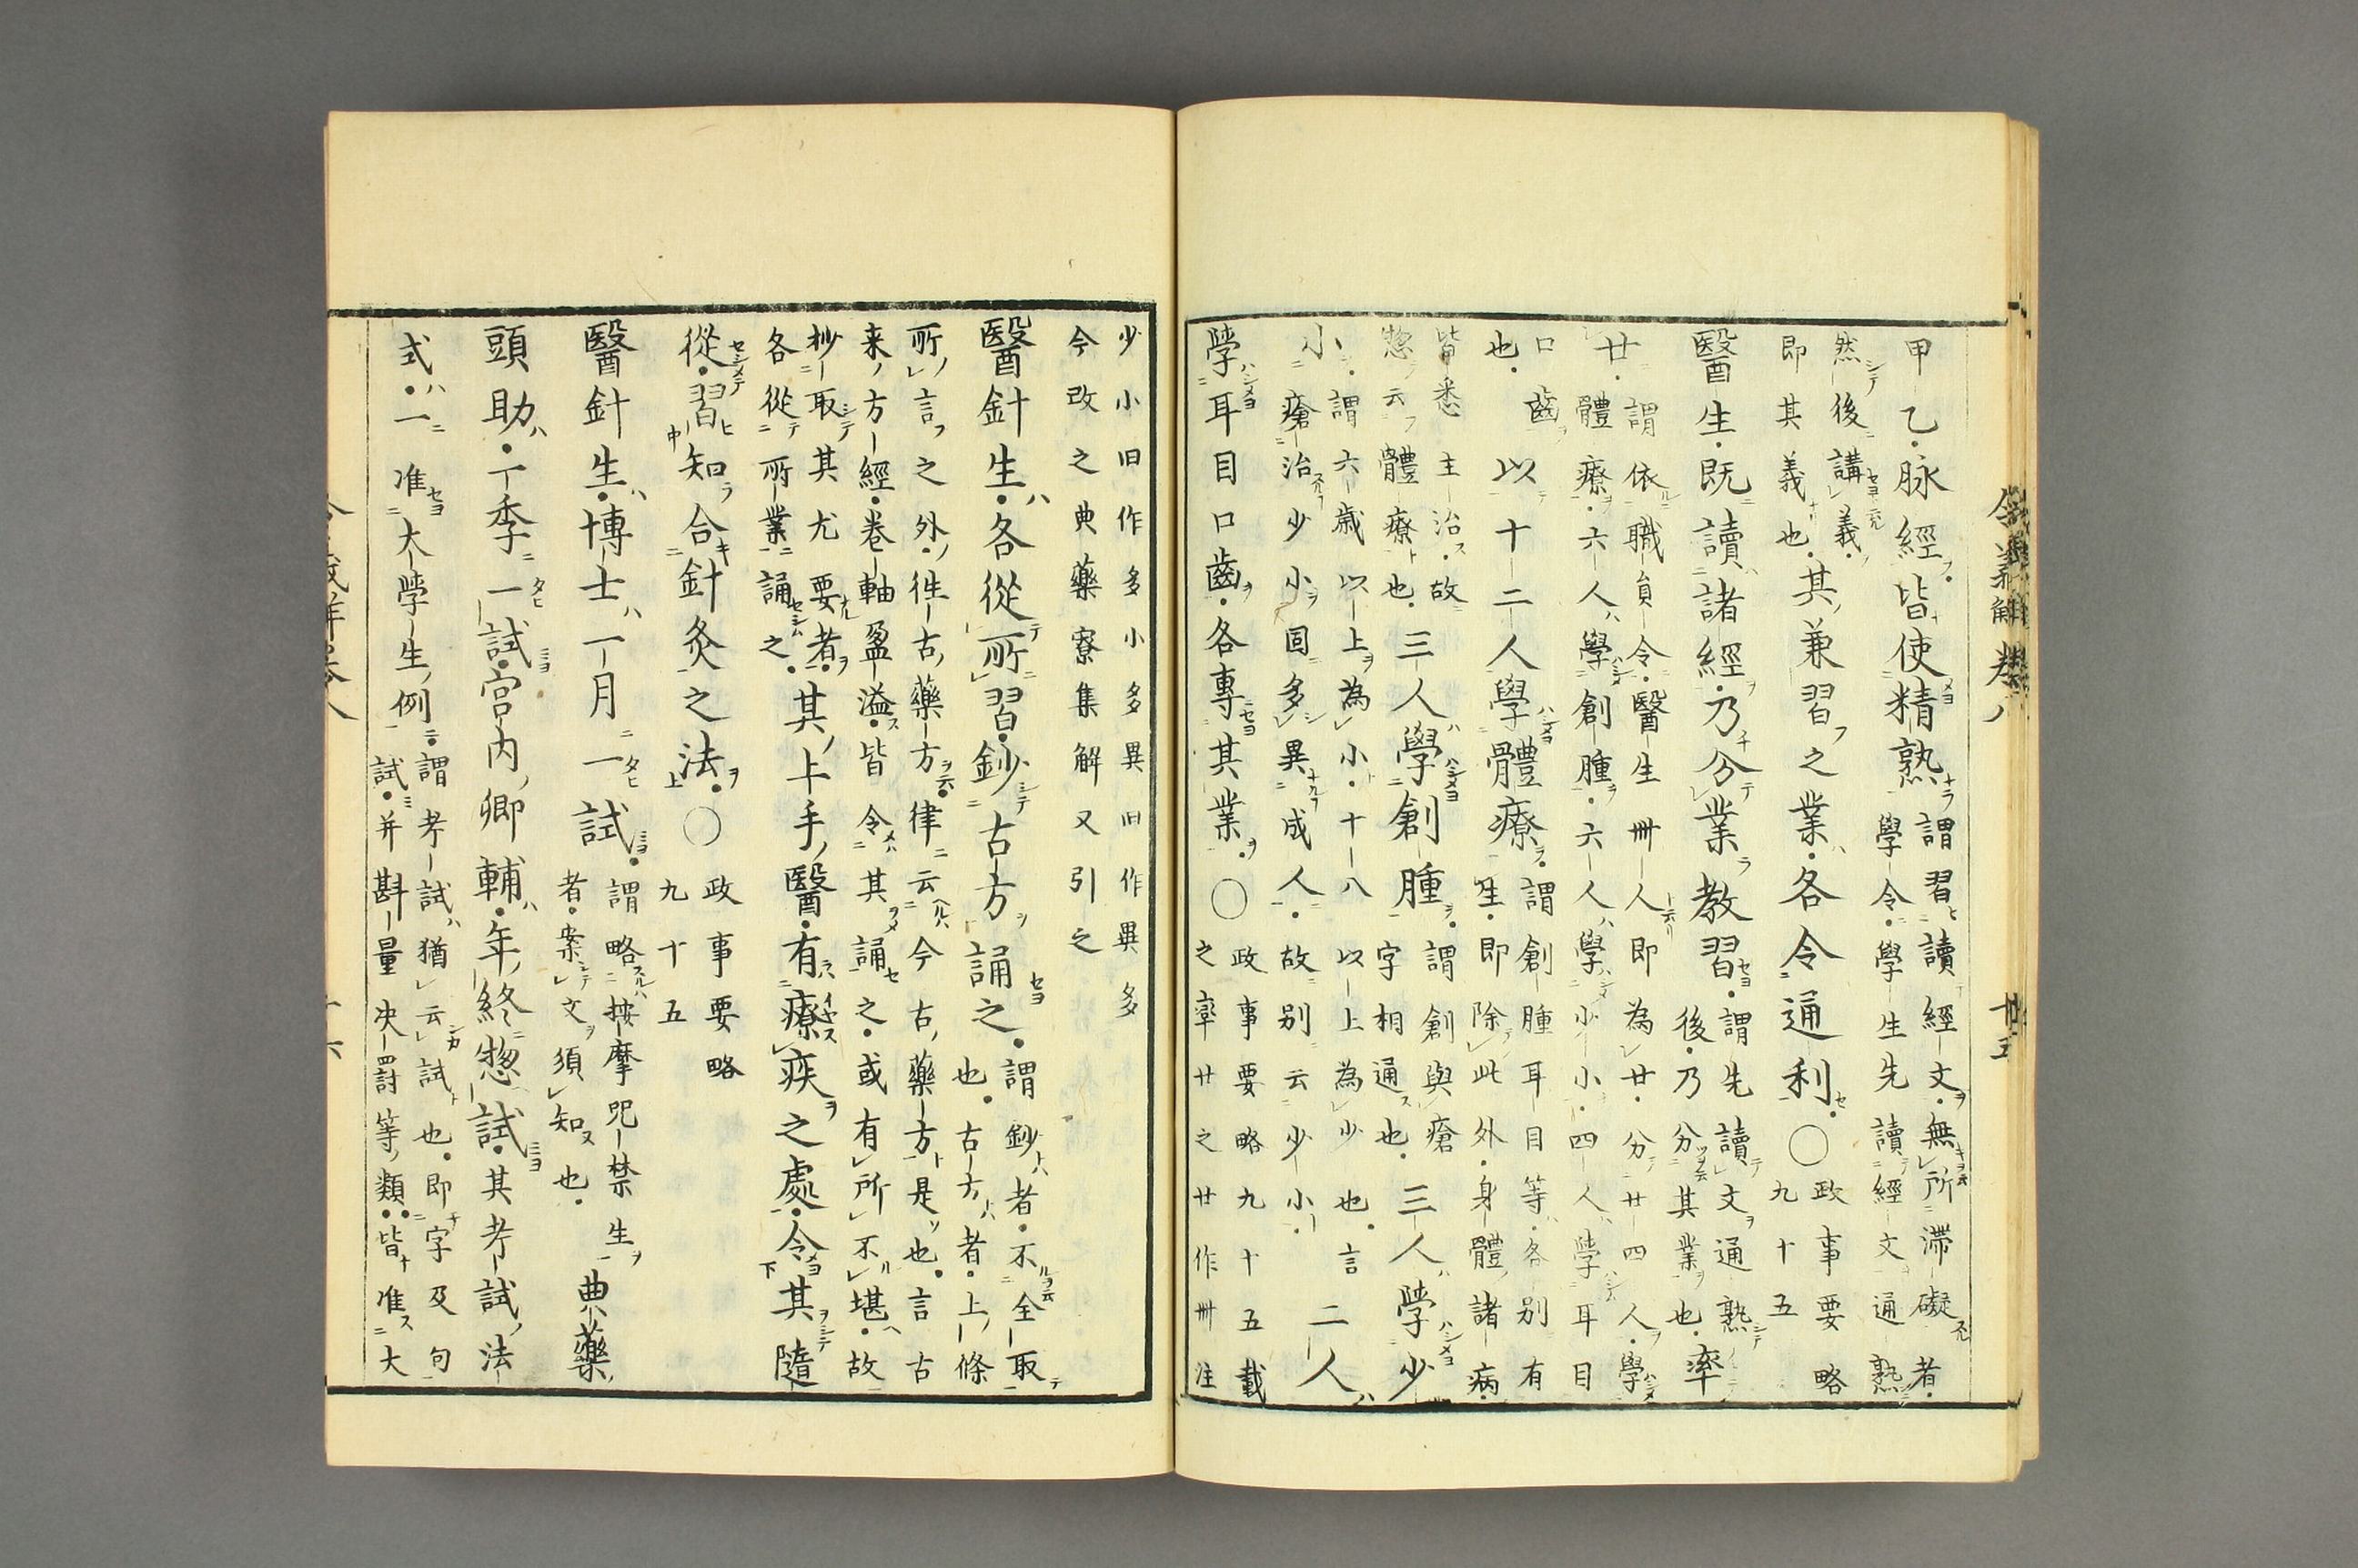 令義解卷八 廿五
甲乙脉經皆使精熟
謂習讀經文無所滯礙者
學令學生先讀經文通熟
然後講義
即其義也
其兼習之業各令通利○
政事要略
九十五
醫生既讀諸經乃分業教習
謂先讀文通熟
後乃分其業也
率
廿
謂依職員令醫生卌人即為廿分廿四人學
體療六人學創腫六人學少小四人學耳目
口齒
也
以十二人學體療
謂創腫耳目等各別有
生即除此外身體諸病
皆悉主治故
惣云體療也
三人學創腫
謂創與瘡
字相通也
三人學少
小
謂六歳以上為小十八以上為少也言
瘡治少小固多異成人故別云少小
二人
學耳目口齒各專其業○
政事要略九十五載
之率廿之廿作卌注
少小旧作多小多異旧作異多
今改之典藥寮集解又引之
醫針生各從所習鈔古方誦之
謂鈔者不全取
也古方者上條
所言之外徃古藥方律云今古藥方是也言古
来方經卷軸盈溢皆令其誦之或有所不堪故
抄取其尤要者
各從所業誦之
其上手醫有療疾之處令其隨
從習知合針灸之法○
政事要略
九十五
醫針生博士一月一試
謂略按摩咒禁生
者案文須知也
典藥
頭助一季一試宮内卿輔年終惣試其考試法
式一准大學生例
謂考試猶云試也即字及句
試并斟量决罸等類皆准大